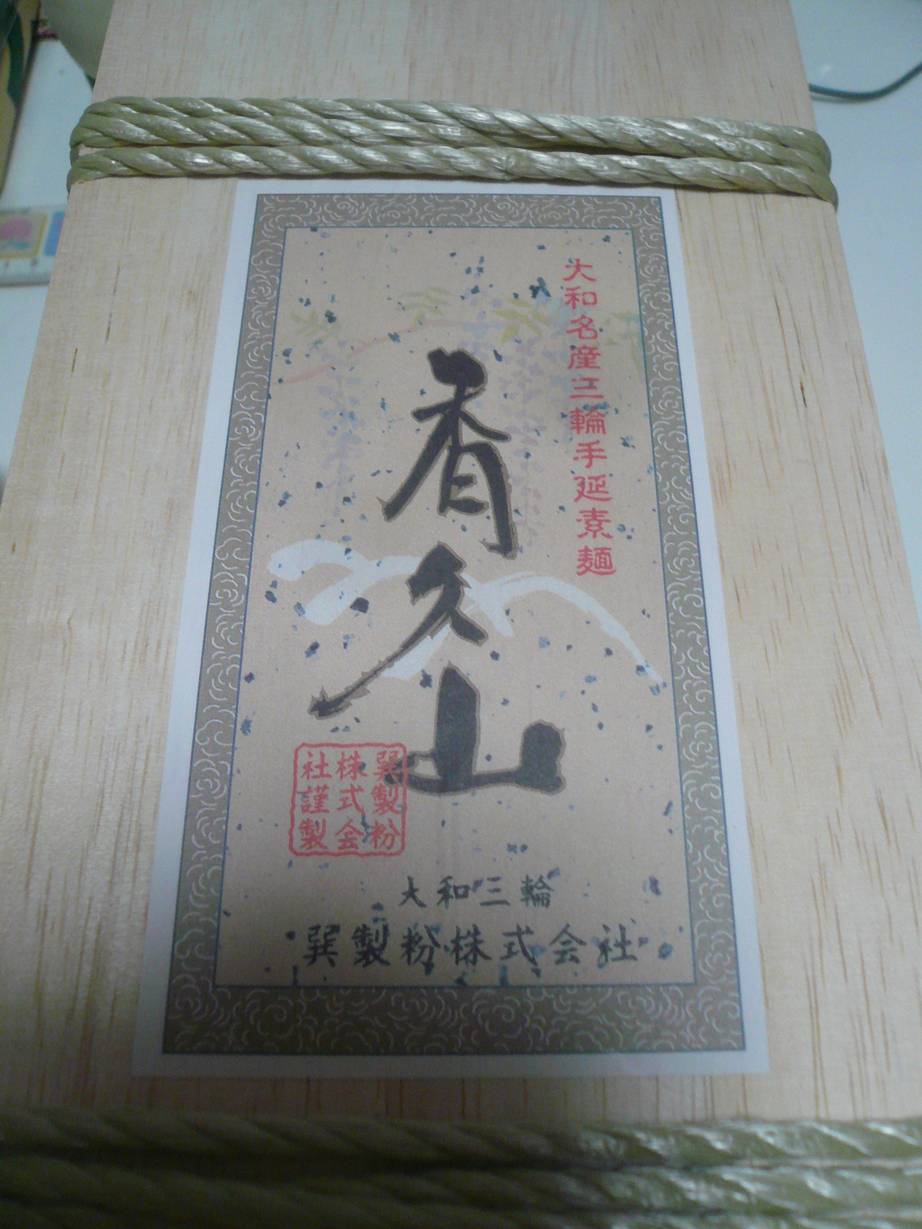 大和名産三輪手延素麺
香久山
巽製粉
株式会
社謹製
大和三輪
巽製粉株式会社